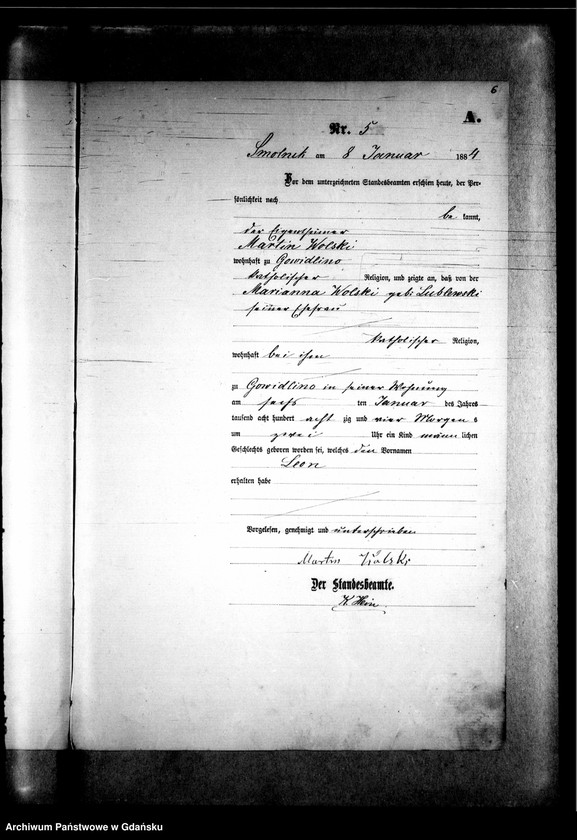 6
A.
Nr. 5
Smolnik am 8 Januar 1884
Vor dem unterzeichneten Standesbeamten erschien heute, der Per-
sönlichkeit nach
be kannt,
der Eigenthümer
Martin Wolski
wohnhaft zu Gowidlino
katholischer Religion, und zeigte an, daß von der
Marianna Wolski geb: Lublewski
seiner Ehefrau
katholischer Religion,
wohnhaft bei ihm
zu Gowidlino in seiner Wohnung
am sechs ten Januar des Jahres
tausend acht hundert acht zig und vier Morgen s
um zwei Uhr ein Kind männlichen
Geschlechts geboren worden sei, welches den Vornamen
Leon
erhalten habe
Vorgelesen, genehmigt und unterschrieben
Martin Wolski
Der Standesbeamte.
K. Hein
Archiwum Państwowe w Gdańsku